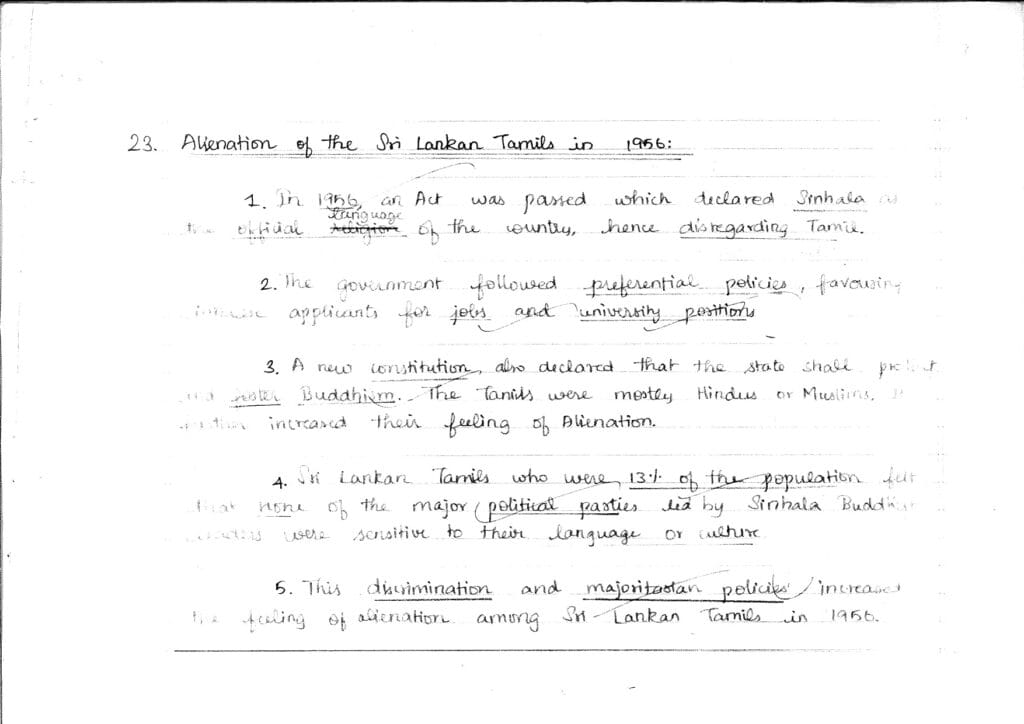 23. Alienation of the Sri Lankan Tamils in 1956:
1. In 1956, an Act was passed which declared Sinhala as
the official language religion of the country, hence disregarding Tamil.
2. The government followed preferential policies, favouring
applicants for jobs and university positions
3. A new constitution, also declared that the state shall protect
and foster Buddhism. The Tamils were mostly Hindus or Muslims. It
further increased their feeling of Alienation.
4. Sri Lankan Tamils who were 13% of the population felt
that none of the major political parties led by Sinhala Buddhist
leaders were sensitive to their language or culture
5. This discrimination and majoritarian policies increased
the feeling of alienation among Sri Lankan Tamils in 1956.